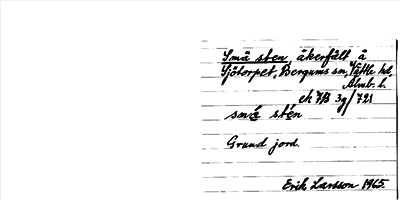 Små sten, åkerfält å
Sjötorpet, Bergums sn, Vättle hd,
Älvsb. l.
ek 7/B 3g/721
små stén
Grund jord.
Erik Larsson 1965.